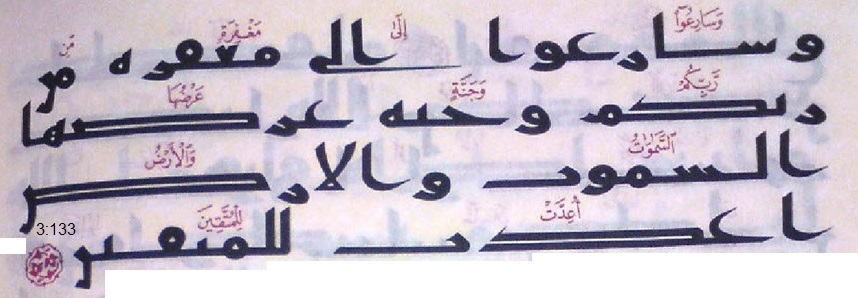 وَسَارِعُوٓا إِلَىٰ مَغْفِرَةٍ مِّن
وسارعوا الى مغفره من
رَّبِّكُمْ وَجَنَّةٍ عَرْضُهَا
ربكم وجنه عرضها
السَّمَٰوَٰتُ وَالْأَرْضُ
السموت والارض
أُعِدَّتْ لِلْمُتَّقِينَ
اعدت للمتقين
3:133